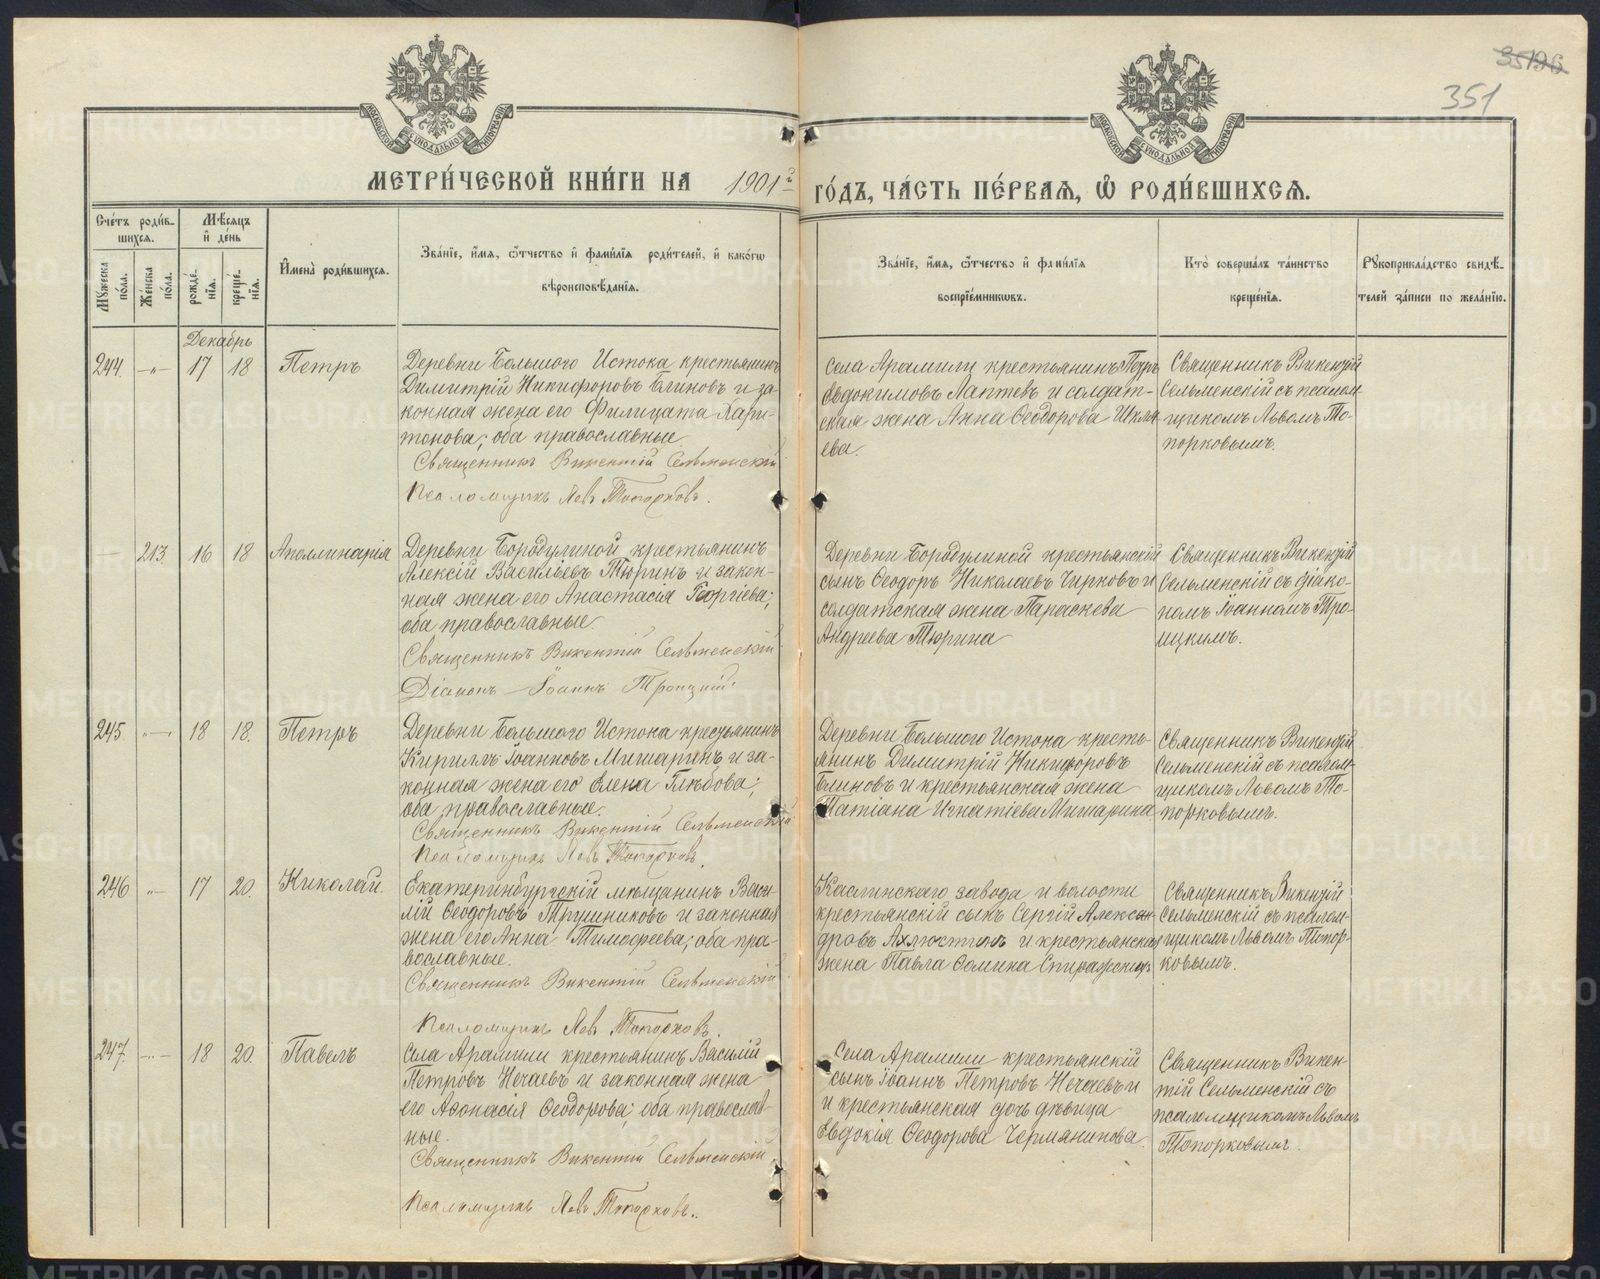 35126
351
МОСКОВСКОЙ СѴНОДАЛЬНОЙ ТИПОГРАФІИ
МОСКОВСКОЙ СѴНОДАЛЬНОЙ ТИПОГРАФІИ
МЕТРИ́ЧЕСКОЙ КНИ́ГИ НА 1901й ГО́ДЪ, ЧА́СТЬ ПЕ́РВАЯ, Ѿ РОДИ́ВШИХСѦ.
Сче́тъ роди́в-
шихсѧ.
Мꙋ́жеска по́ла.
Же́нска по́ла.
Мѣ́сѧцъ
и҆ де́нь
рожде́нїѧ.
креще́нїѧ.
И҆мена̀ роди́вшихсѧ.
Зва́нїе, и҆́мѧ, ѻ҆́тчество и҆ фами́лїѧ роди́телей, и҆ како́гѡ
вѣроисповѣ́данїѧ.
Зва́нїе, и҆́мѧ, ѻ҆́тчество и҆ фами́лїѧ
воспрїе́мникѡвъ.
Кто̀ соверша́лъ та́инство
креще́нїѧ.
Рꙋкоприкла́дство свидѣ́-
телей за́писи по жела́нїю.
Декабрь
244. —„— 17 18 Петръ
Деревни Большого Истока крестьянинъ
Димитрій Никифоровъ Блиновъ и за-
конная жена его Филицата Хари-
тонова; оба православные.
Священникъ Викентій Сельменскій
Псаломщикъ Левъ Топорковъ.
Села Арамили крестьянинъ Петръ
Евдокимовъ Лаптевъ и солдат-
ская жена Анна Ѳеодорова
ева.
Священникъ Викентій
Сельменскій съ псалом-
щикомъ Львомъ То-
порковымъ.
— 213. 16 18 Аполлинарія
Деревни Бородулиной крестьянинъ
Алексій Васильевъ Тюринъ и закон-
ная жена его Анастасія Георгіева;
оба православные.
Священникъ Викентій Сельменскій
Діаконъ Іоаннъ Троицкій.
Деревни Бородулиной крестьянскій
сынъ Ѳеодоръ Николаевъ Чирковъ и
солдатская жена Параскева
Андреева Тюрина
Священникъ Викентій
Сельменскій съ діако-
номъ Іоанномъ Тро-
ицкимъ.
245. „— 18 18. Петръ
Деревни Большого Истока крестьянинъ
Кириллъ Іоанновъ Мишаринъ и за-
конная жена его Елена Глѣбова;
оба православные.
Священникъ Викентій Сельменскій
Псаломщикъ Левъ Топорковъ.
Деревни Большого Истока кресть-
янинъ Димитрій Никифоровъ
Блиновъ и крестьянская жена
Татіана Игнатіева Мишарина
Священникъ Викентій
Сельменскій съ псалом-
щикомъ Львомъ То-
порковымъ.
246 „— 17 20. Николай.
Екатеринбургскій мѣщанинъ Васи-
лій Ѳеодоровъ Трушниковъ и законная
жена его Анна Тимоѳеева; оба пра-
вославные.
Священникъ Викентій Сельменскій
Псаломщикъ Левъ Топорковъ.
Каслинскаго завода и волости
крестьянскій сынъ Сергій Алексан-
дровъ Ахлюстинъ и крестьянская
жена Павла Ѳомина
Священникъ Викентій
Сельменскій съ псалом-
щикомъ Львомъ Топор-
ковымъ.
247. —„— 18 20. Павелъ
Села Арамили крестьянинъ Василій
Петровъ Нечаевъ и законная жена
его Аѳонасія Ѳеодорова; оба православ-
ные.
Священникъ Викентій Сельменскій
Псаломщикъ Левъ Топорковъ.
Села Арамили крестьянскій
сынъ Іоаннъ Петровъ Нечаевъ и
и крестьянская дочь дѣвица
Евдокія Ѳеодорова Черманинова.
Священникъ Викен-
тій Сельменскій съ
псаломщикомъ Львомъ
Топорковымъ.
METRIKI.GASO-URAL.RU